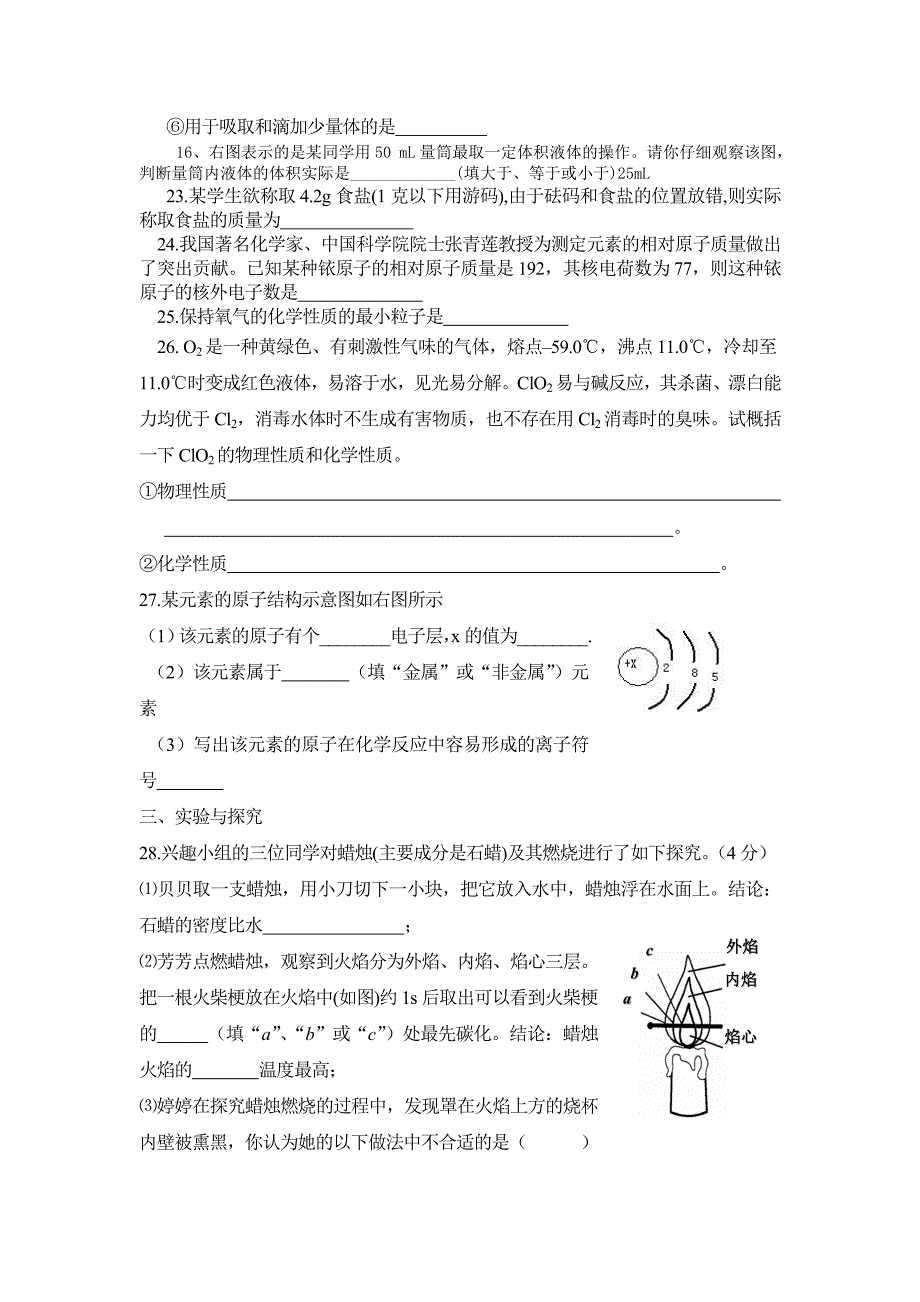 ⑥用于吸取和滴加少量体的是__________
16、右图表示的是某同学用50 mL量筒最取一定体积液体的操作。请你仔细观察该图，
判断量筒内液体的体积实际是_____________(填大于、等于或小于)25mL
23.某学生欲称取4.2g食盐(1克以下用游码),由于砝码和食盐的位置放错,则实际
称取食盐的质量为_______________
24.我国著名化学家、中国科学院院士张青莲教授为测定元素的相对原子质量做出
了突出贡献。已知某种铱原子的相对原子质量是192，其核电荷数为77，则这种铱
原子的核外电子数是______________
25.保持氧气的化学性质的最小粒子是______________
26. O₂是一种黄绿色、有刺激性气味的气体，熔点–59.0℃，沸点11.0℃，冷却至
11.0℃时变成红色液体，易溶于水，见光易分解。ClO₂易与碱反应，其杀菌、漂白能
力均优于Cl₂，消毒水体时不生成有害物质，也不存在用Cl₂消毒时的臭味。试概括
一下ClO₂的物理性质和化学性质。
①物理性质______________________________________________________________
_________________________________________________________。
②化学性质_______________________________________________________。
27.某元素的原子结构示意图如右图所示
（1）该元素的原子有个________电子层，x的值为________.
（2）该元素属于________（填“金属”或“非金属”）元
素
（3）写出该元素的原子在化学反应中容易形成的离子符
号________
+X 2 8 5
三、实验与探究
28.兴趣小组的三位同学对蜡烛(主要成分是石蜡)及其燃烧进行了如下探究。（4分）
⑴贝贝取一支蜡烛，用小刀切下一小块，把它放入水中，蜡烛浮在水面上。结论：
石蜡的密度比水________________；
⑵芳芳点燃蜡烛，观察到火焰分为外焰、内焰、焰心三层。
把一根火柴梗放在火焰中(如图)约1s后取出可以看到火柴梗
的______（填“a”、“b”或“c”）处最先碳化。结论：蜡烛
火焰的________温度最高；
⑶婷婷在探究蜡烛燃烧的过程中，发现罩在火焰上方的烧杯
内壁被熏黑，你认为她的以下做法中不合适的是（　　）
c
b
a
外焰
内焰
焰心